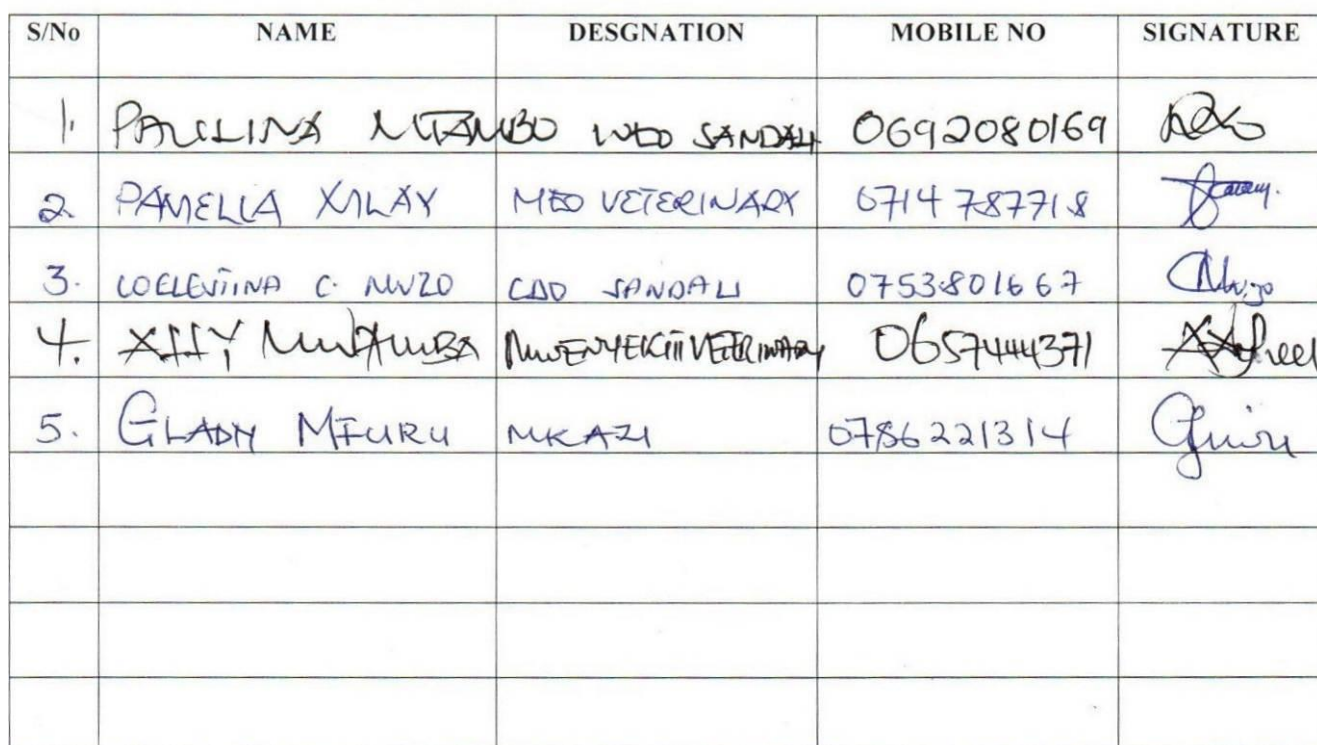 S/No NAME DESGNATION MOBILE NO SIGNATURE
1. PAULINA MTAMBO WEO SANDALI 0692080169
2. PAMELLA XILAY MEO VETERINARY 0714787718
3. COELESTINA C. NVZO CDO SANDALI 0753801667
4. MWENYEKITI VETERINARY 0657444371
5. GLADY MFURU MKAZI 0786221314